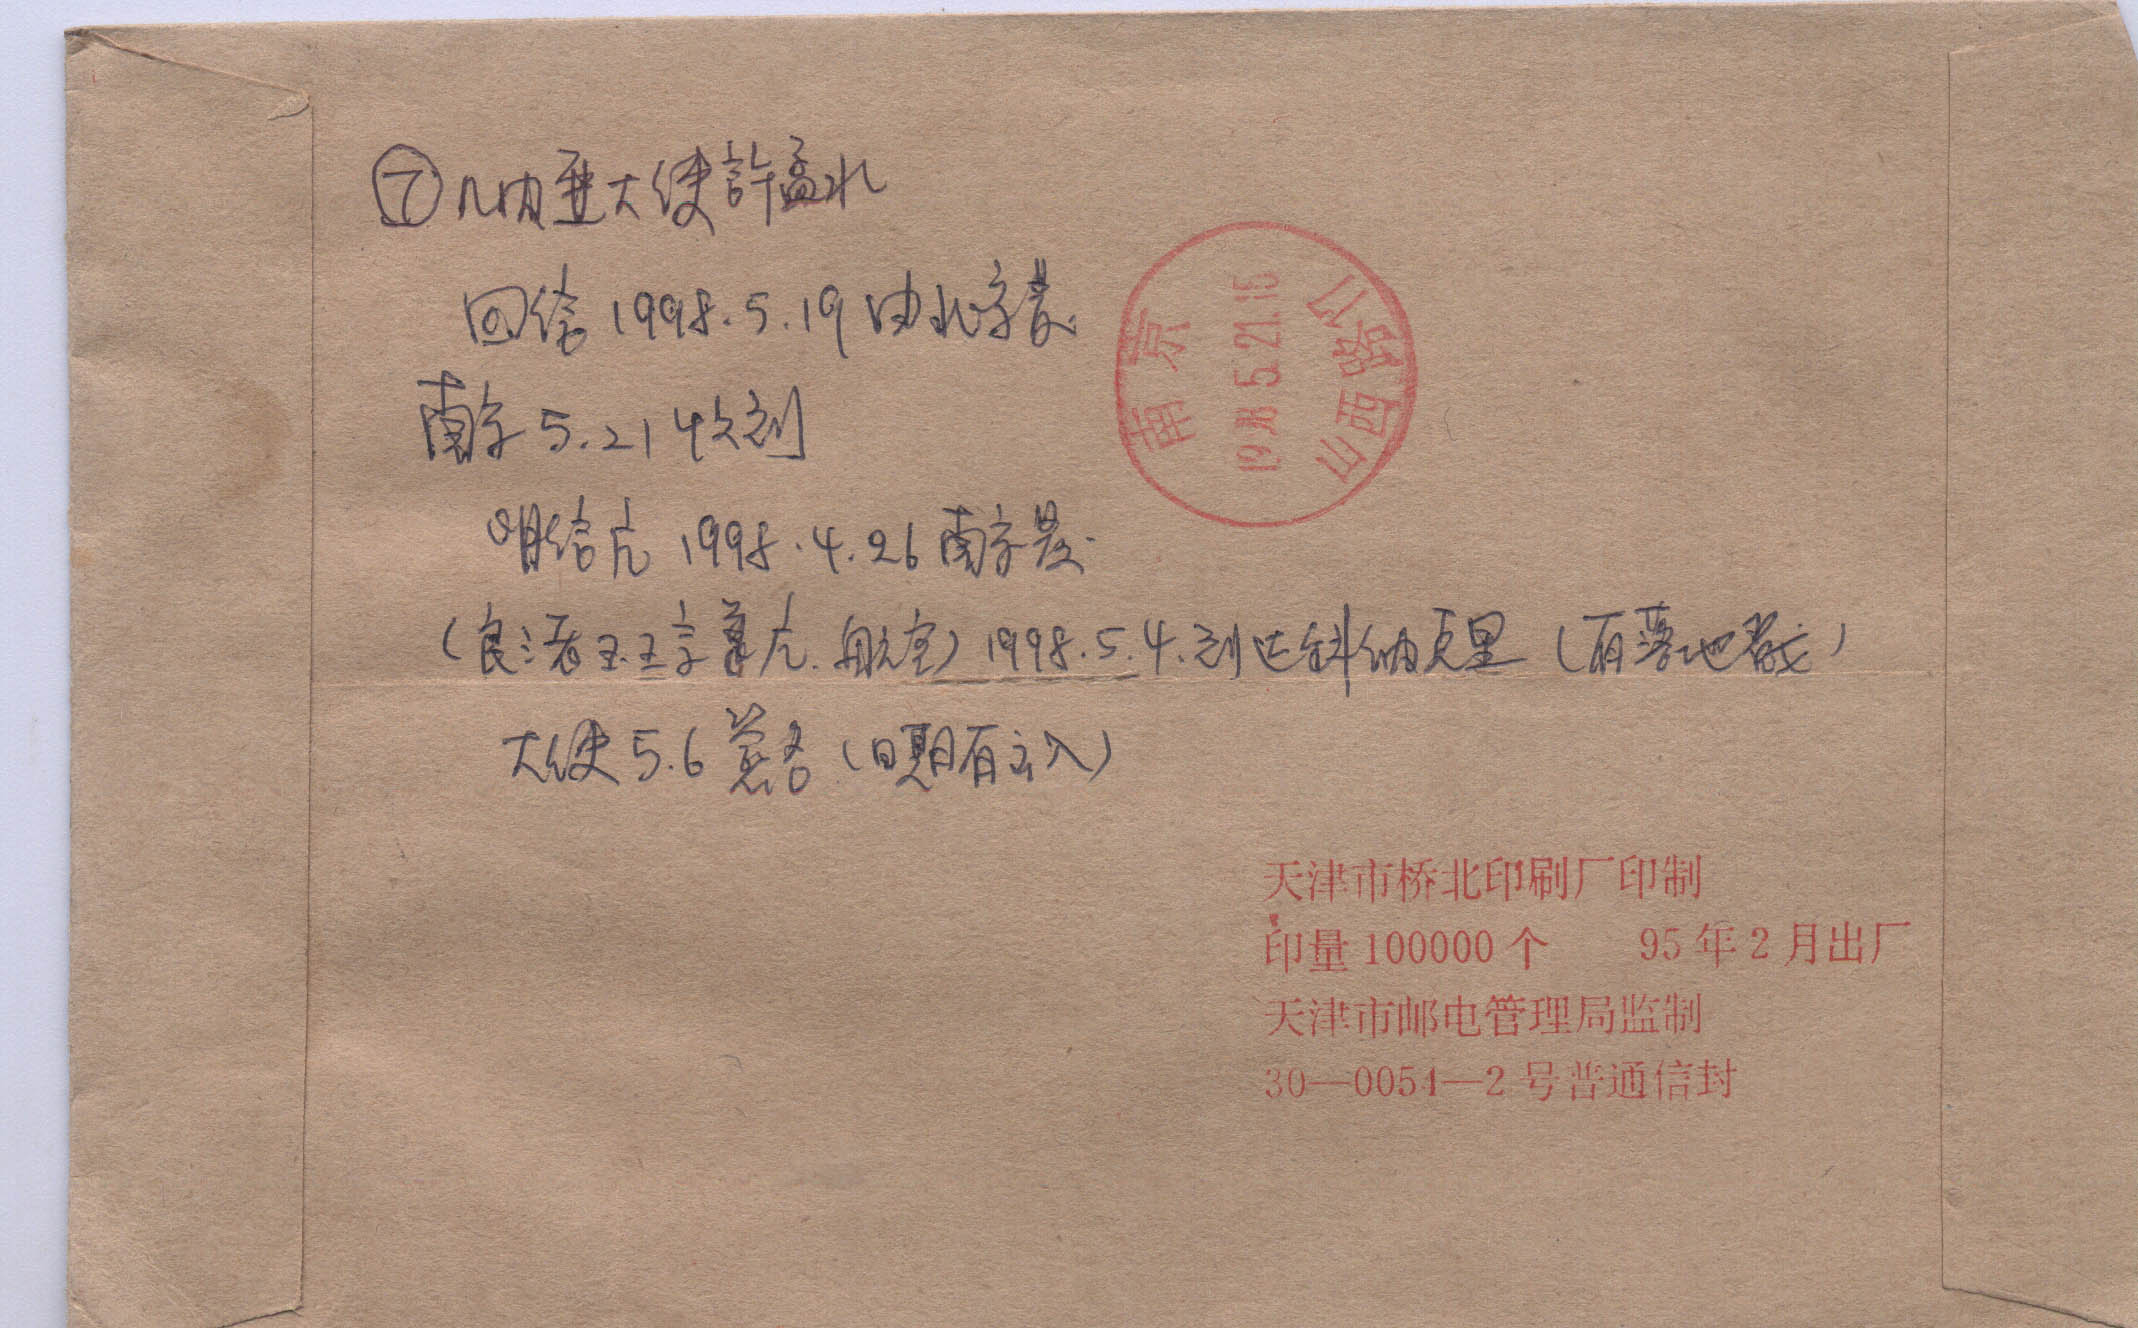 ⑦几内亚大使許孟水
回信1998.5.19由北京发
南京5.21收到
明信片1998.4.26南京发.
(良渚玉王字片.航空)1998.5.4.到达科纳克里(有落地戳)
大使5.6签名(日期有出入)
南京
1998.5.21.15
山西路
天津市桥北印刷厂印制
印量100000个 95年2月出厂
天津市邮电管理局监制
30—0054—2号普通信封